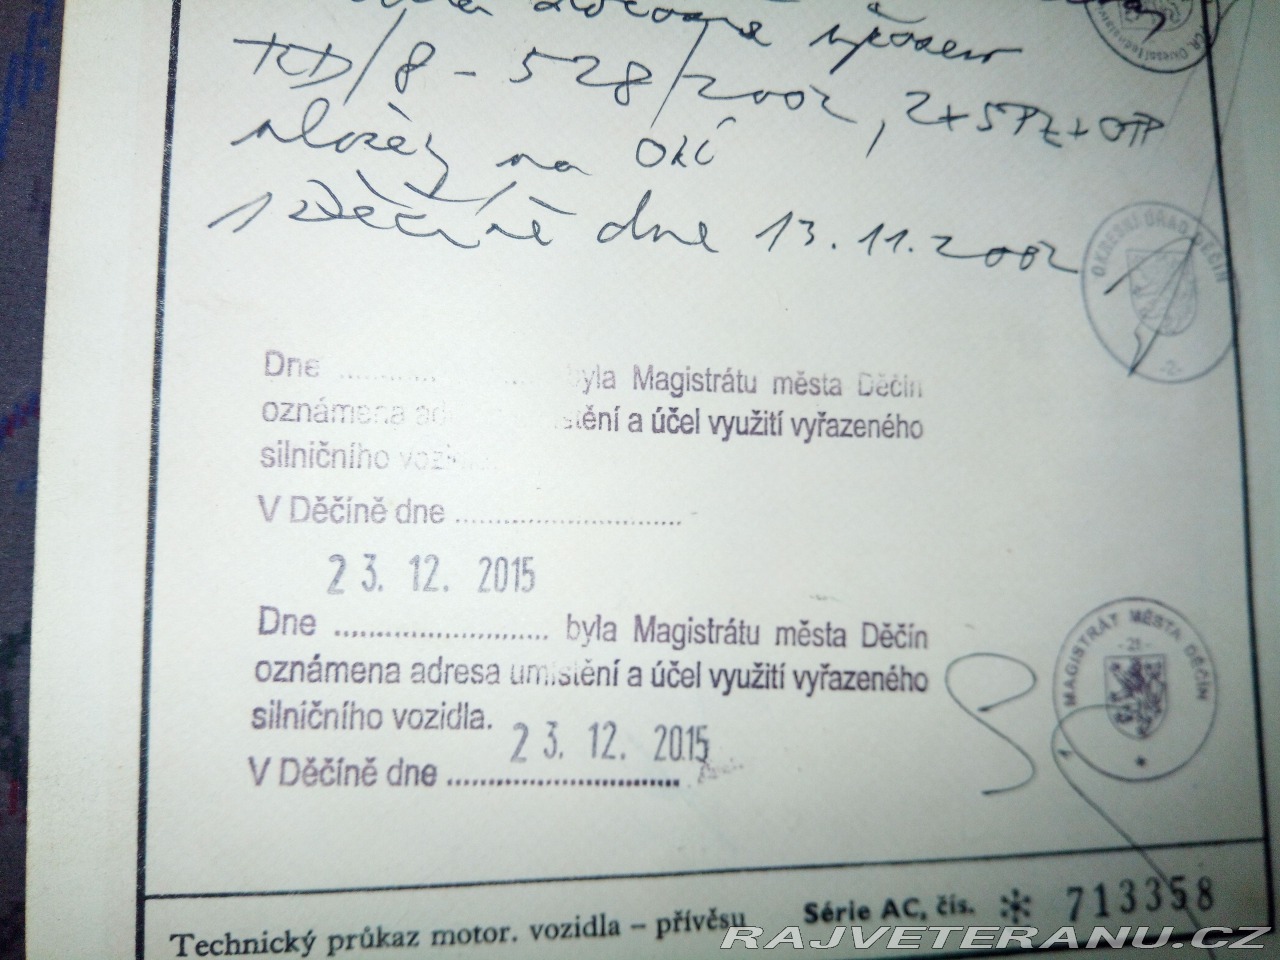 TCD/8 - 528/2002, 2x SPZ + OTP
uložey na OÚ
V Děčíně dne 13.11.2002
OKRESNÍ ÚŘAD DĚČÍN
-2-
Dne .................... byla Magistrátu města Děčín
oznámena ad umístění a účel využití vyřazeného
silničního vozidla
V Děčíně dne ..............................
23. 12. 2015
Dne ............................ byla Magistrátu města Děčín
oznámena adresa umístění a účel využití vyřazeného
silničního vozidla.
23. 12. 2015
V Děčíně dne ..............................
MAGISTRÁT MĚSTA DĚČÍN
-21-
Technický průkaz motor. vozidla – přívěsu Série AC, čís. * 713358
RAJVETERANU.CZ